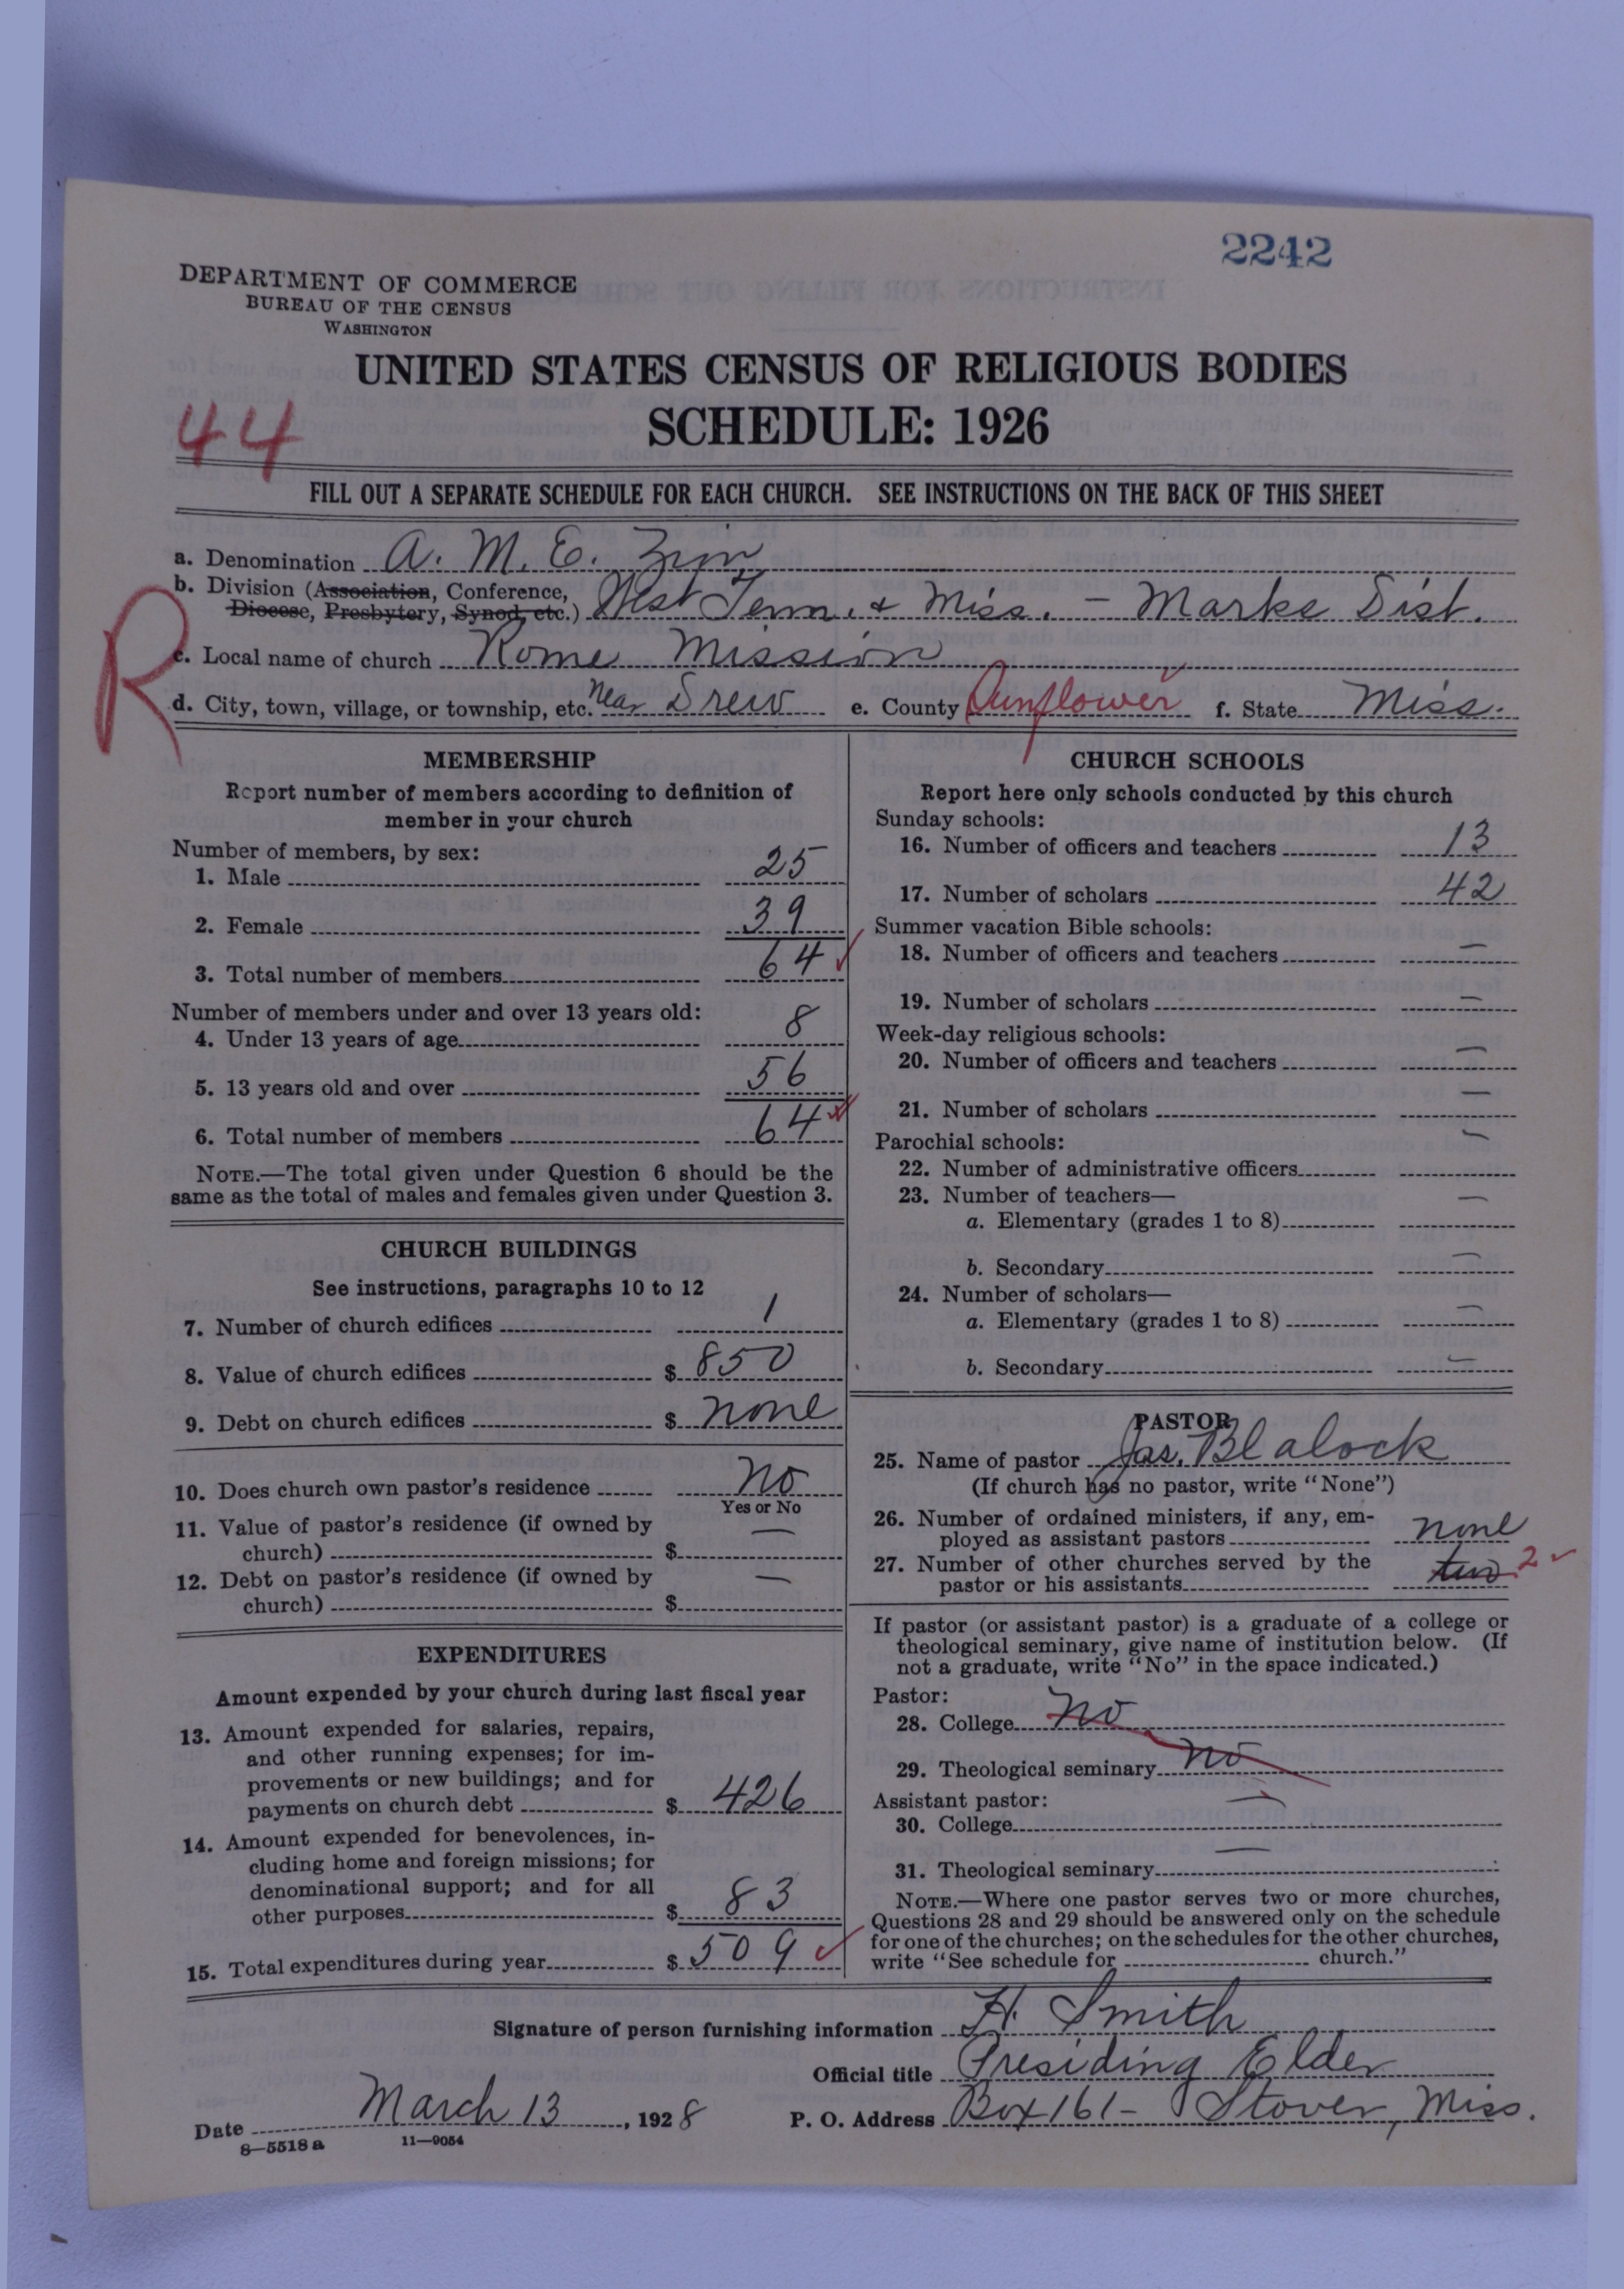 2242
DEPARTMENT OF COMMERCE
BUREAU OF THE CENSUS
WASHINGTON
UNITED STATES CENSUS OF RELIGIOUS BODIES
SCHEDULE: 1926
44
FILL OUT A SEPARATE SCHEDULE FOR EACH CHURCH. SEE INSTRUCTIONS ON THE BACK OF THIS SHEET
R
a. Denomination A. M. E. Zion
b. Division (Association, Conference,
Diocese, Presbytery, Synod, etc.) West Tenn. & Miss. - Marks Dist.
c. Local name of church Rome Mission
d. City, town, village, or township, etc. Near Drew e. County Sunflower f. State Miss.
MEMBERSHIP
Report number of members according to definition of
member in your church
Number of members, by sex:
1. Male 25
2. Female 39
3. Total number of members 64
Number of members under and over 13 years old:
4. Under 13 years of age 8
5. 13 years old and over 56
6. Total number of members 64
NOTE.—The total given under Question 6 should be the
same as the total of males and females given under Question 3.
CHURCH BUILDINGS
See instructions, paragraphs 10 to 12
7. Number of church edifices 1
8. Value of church edifices $ 850
9. Debt on church edifices $ none
10. Does church own pastor's residence No
Yes or No
11. Value of pastor's residence (if owned by
church) $ —
12. Debt on pastor's residence (if owned by
church) $ —
EXPENDITURES
Amount expended by your church during last fiscal year
13. Amount expended for salaries, repairs,
and other running expenses; for im-
provements or new buildings; and for
payments on church debt $ 426
14. Amount expended for benevolences, in-
cluding home and foreign missions; for
denominational support; and for all
other purposes $ 83
15. Total expenditures during year $ 509
CHURCH SCHOOLS
Report here only schools conducted by this church
Sunday schools:
16. Number of officers and teachers 13
17. Number of scholars 42
Summer vacation Bible schools:
18. Number of officers and teachers —
19. Number of scholars —
Week-day religious schools:
20. Number of officers and teachers —
21. Number of scholars —
Parochial schools:
22. Number of administrative officers —
23. Number of teachers—
a. Elementary (grades 1 to 8) —
b. Secondary —
24. Number of scholars—
a. Elementary (grades 1 to 8) —
b. Secondary —
PASTOR
25. Name of pastor Jas. Blalock
(If church has no pastor, write "None")
26. Number of ordained ministers, if any, em-
ployed as assistant pastors none
27. Number of other churches served by the
pastor or his assistants two 2
If pastor (or assistant pastor) is a graduate of a college or
theological seminary, give name of institution below. (If
not a graduate, write "No" in the space indicated.)
Pastor:
28. College No
29. Theological seminary No
Assistant pastor:
30. College —
31. Theological seminary —
NOTE.—Where one pastor serves two or more churches,
Questions 28 and 29 should be answered only on the schedule
for one of the churches; on the schedules for the other churches,
write "See schedule for church."
Signature of person furnishing information H. Smith
Official title Presiding Elder
Date March 13, 1928 P. O. Address Box 161- Stover, Miss.
8—5518 a 11—9054